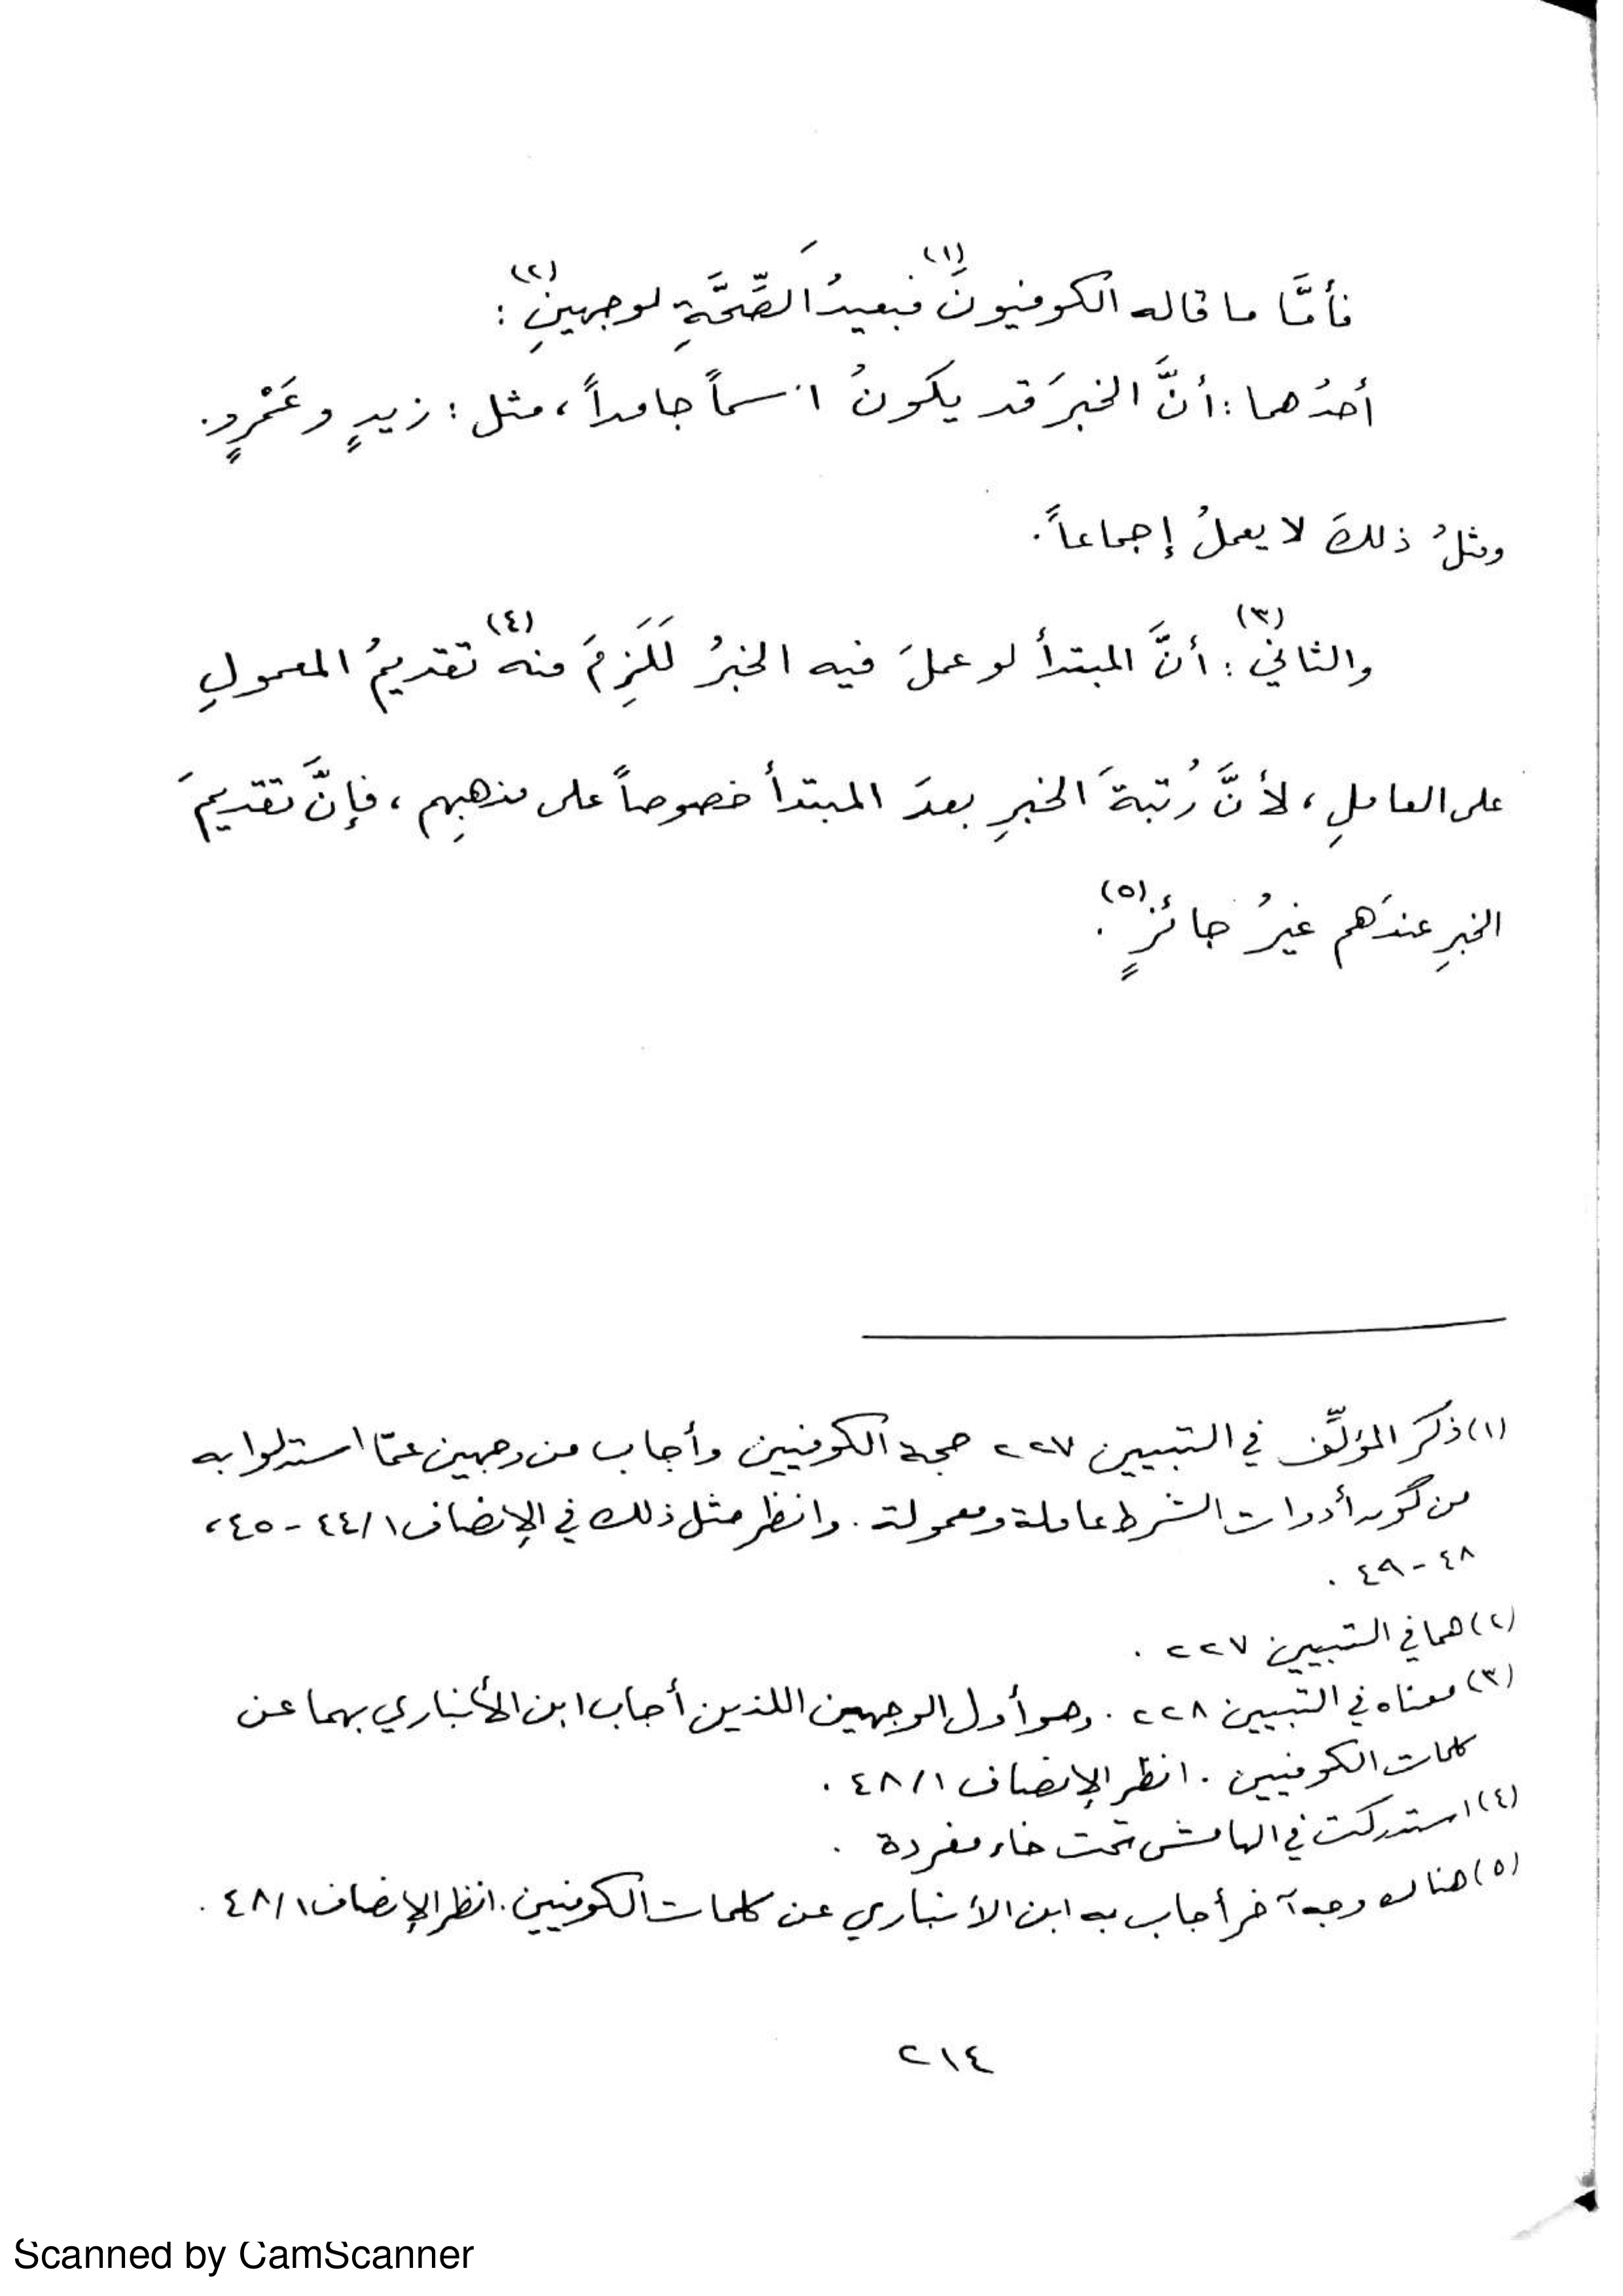 فأمَّا ما قاله الكوفيونَ(١) فبعيدُ الصِّحَّةِ لوجهينِ(٢) :
أحدُهما : أنَّ الخبرَ قد يكونُ اسماً جامداً ، مثل : زيدٍ وعَمْرٍو .
ومثلُ ذلكَ لا يعملُ إجماعاً .
والثاني(٣) : أنَّ المبتدأ لو عملَ فيه الخبرُ لَلَزِمَ منه(٤) تقديمُ المعمولِ
على العاملِ ، لأنَّ رُتبةَ الخبرِ بعدَ المبتدأ خصوصاً على مذهبِهم ، فإنَّ تقديمَ
الخبرِ عندَهم غيرُ جائزٍ(٥) .
(١) ذكر المؤلِّف في التبيين ٢٢٧ حجة الكوفيين وأجاب من وجهين عمّا استدلوا به
من كون أدوات الشرط عاملة ومعمولة . وانظر مثل ذلك في الإنصاف ٤٤/١ - ٤٥ ،
٤٨ - ٤٩ .
(٢) هما في التبيين ٢٢٧ .
(٣) معناه في التبيين ٢٢٨ . وهو أول الوجهين اللذين أجاب ابن الأنباري بهما عن
كلمات الكوفيين . انظر الإنصاف ٤٨/١ .
(٤) استدركت في الهامش تحت خاء مفردة .
(٥) هناك وجه آخر أجاب به ابن الأنباري عن كلمات الكوفيين . انظر الإنصاف ٤٨/١ .
٢١٤
Scanned by CamScanner